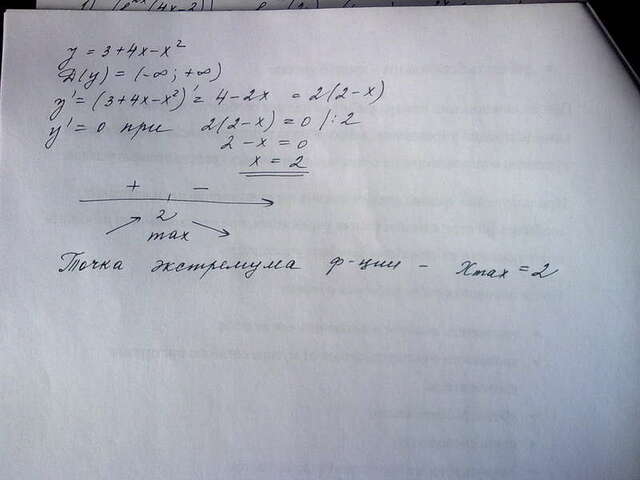 y = 3+4x-x²
D(y) = (-∞; +∞)
y' = (3+4x-x²)' = 4-2x = 2(2-x)
y' = 0 при 2(2-x) = 0 /:2
2-x = 0
x = 2
+ -
2
max
Точка экстремума ф-ции - Xmax = 2